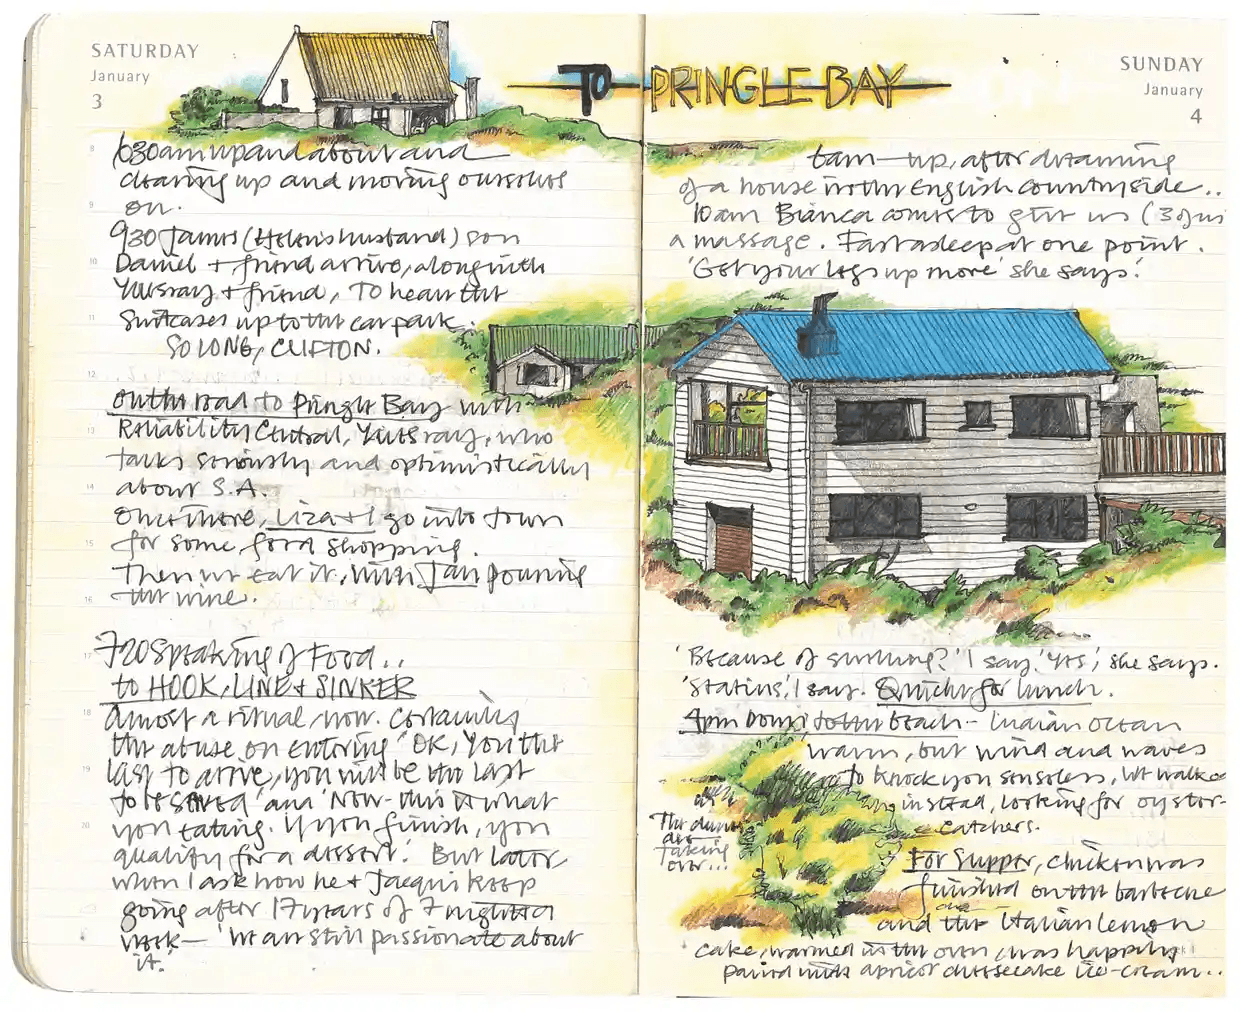 SATURDAY
January
3
TO PRINGLE BAY
SUNDAY
January
4
8
630am up and about and
clearing up and moving ourselves
on.
9
930 James (Helen's husband) son
10
Daniel + friend arrive, along with
Yursray + friend, to heave the
11
Suitcases up to the car park.
SO LONG, CLIFTON.
12
on the road to Pringle Bay with
13
Reliability Central, Yursray, who
talks seriously and optimistically
14
about S.A.
Once there, Liza + I go into town
15
for some food shopping.
Then we eat it, with Jan pouring
16
the wine.
17
720 Speaking of Food..
to HOOK, LINE + SINKER
18
Almost a ritual, now. Certainly
the abuse on entering 'OK, you the
19
last to arrive, you will be the last
to be served' and 'Now - this is what
20
you eating. If you finish, you
qualify for a dessert.' But later
when I ask how he + Jacqui keep
going after 17 years of 7 nights a
week - 'We are still passionate about
it.'
6am - up, after dreaming
of a house in the English countryside..
10am Bianca comes to give us (3 of us)
a massage. Fast asleep at one point.
'Get your legs up more' she says.'
'Because of swelling?' I say. 'Yes', she says.
'Statins', I say. Quiche for lunch.
4pm Down to the beach - Indian Ocean
warm, but wind and waves
to knock you senseless, we walked
instead, looking for oyster-
catchers.
The dunes
are
taking
over...
For Supper, chicken was
finished on the barbecue
and the Italian lemon
cake, warmed in the oven, was happily
paired with apricot cheesecake ice-cream..